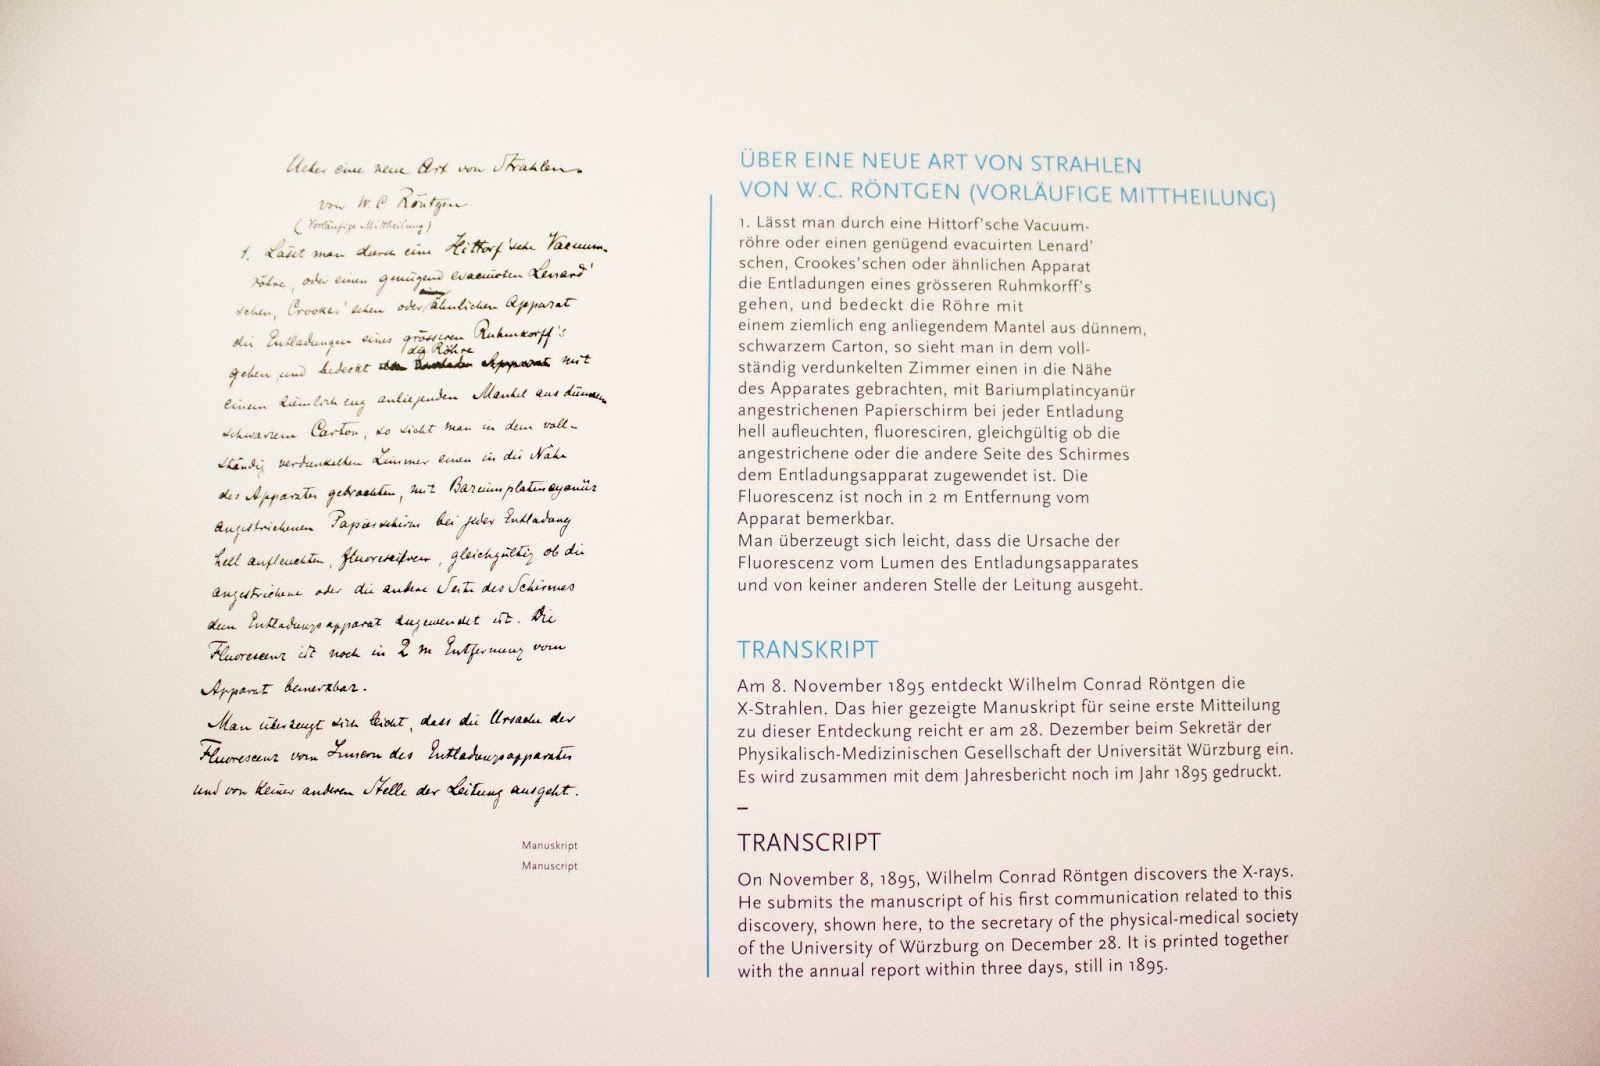 Ueber eine neue Art von Strahlen.
von W. C. Röntgen
(Vorläufige Mittheilung)
1. Lässt man durch eine Hittorf'sche Vacuum-
röhre, oder einen genügend evacuirten Lenard'
schen, Crookes'schen oder ähnlichen Apparat
die Entladungen eines grösseren Ruhmkorff's
die Röhre
gehen und bedeckt Apparat mit
einem ziemlich eng anliegenden Mantel aus dünnem
schwarzem Carton, so sieht man in dem voll-
ständig verdunkelten Zimmer einen in die Nähe
des Apparates gebrachten, mit Bariumplatincyanür
angestrichenen Papierschirm bei jeder Entladung
hell aufleuchten, fluoresciren, gleichgültig ob die
angestrichene oder die andere Seite des Schirmes
dem Entladungsapparat zugewendet ist. Die
Fluorescenz ist noch in 2 m Entfernung vom
Apparat bemerkbar.
Man überzeugt sich leicht, dass die Ursache der
Fluorescenz vom Innern des Entladungsapparates
und von keiner anderen Stelle der Leitung ausgeht.
Manuskript
Manuscript
ÜBER EINE NEUE ART VON STRAHLEN
VON W.C. RÖNTGEN (VORLÄUFIGE MITTHEILUNG)
1. Lässt man durch eine Hittorf'sche Vacuum-
röhre oder einen genügend evacuirten Lenard'
schen, Crookes'schen oder ähnlichen Apparat
die Entladungen eines grösseren Ruhmkorff's
gehen, und bedeckt die Röhre mit
einem ziemlich eng anliegendem Mantel aus dünnem,
schwarzem Carton, so sieht man in dem voll-
ständig verdunkelten Zimmer einen in die Nähe
des Apparates gebrachten, mit Bariumplatincyanür
angestrichenen Papierschirm bei jeder Entladung
hell aufleuchten, fluoresciren, gleichgültig ob die
angestrichene oder die andere Seite des Schirmes
dem Entladungsapparat zugewendet ist. Die
Fluorescenz ist noch in 2 m Entfernung vom
Apparat bemerkbar.
Man überzeugt sich leicht, dass die Ursache der
Fluorescenz vom Lumen des Entladungsapparates
und von keiner anderen Stelle der Leitung ausgeht.
TRANSKRIPT
Am 8. November 1895 entdeckt Wilhelm Conrad Röntgen die
X-Strahlen. Das hier gezeigte Manuskript für seine erste Mitteilung
zu dieser Entdeckung reicht er am 28. Dezember beim Sekretär der
Physikalisch-Medizinischen Gesellschaft der Universität Würzburg ein.
Es wird zusammen mit dem Jahresbericht noch im Jahr 1895 gedruckt.
–
TRANSCRIPT
On November 8, 1895, Wilhelm Conrad Röntgen discovers the X-rays.
He submits the manuscript of his first communication related to this
discovery, shown here, to the secretary of the physical-medical society
of the University of Würzburg on December 28. It is printed together
with the annual report within three days, still in 1895.